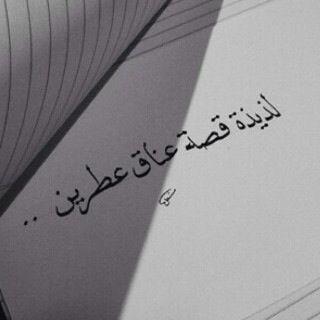 لذيذة قصة عناق عطرين ..